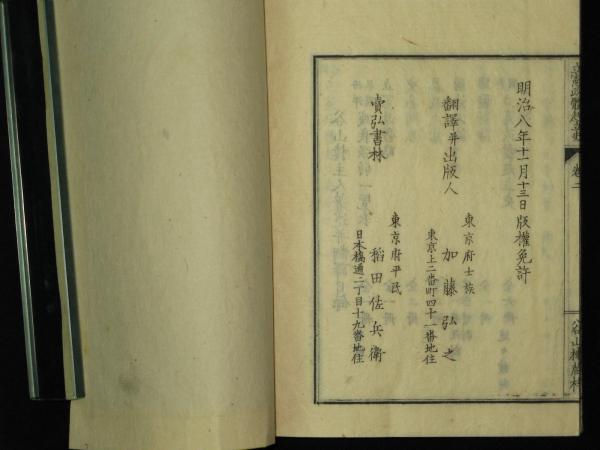 明治八年十一月十三日版權免許
翻譯幷出版人
東京府士族
加藤弘之
東京上二番町四十一番地住
賣弘書林
東京府平民
稻田佐兵衛
日本橋通二丁目十九番地住
卷二